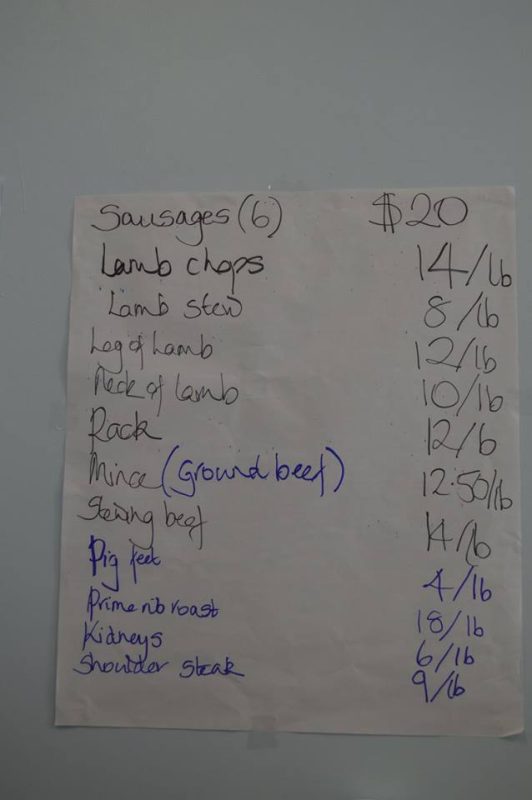 Sausages (6) $20
Lamb chops 14/lb
Lamb stew 8/lb
Leg of Lamb 12/lb
Neck of lamb 10/lb
Rack 12/6
Mince (ground beef) 12.50/lb
Stewing beef 14/lb
Pig feet 4/lb
Prime rib roast 18/lb
Kidneys 6/lb
Shoulder steak 9/lb